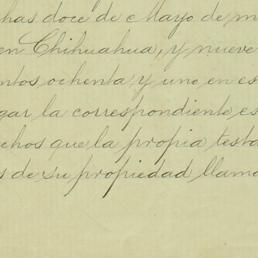 has doce de Mayo de m
en Chihuahua, y nueve
ntos ochenta y uno en es
gar la correspondiente es
chos que la propia testa
s de su propiedad llama